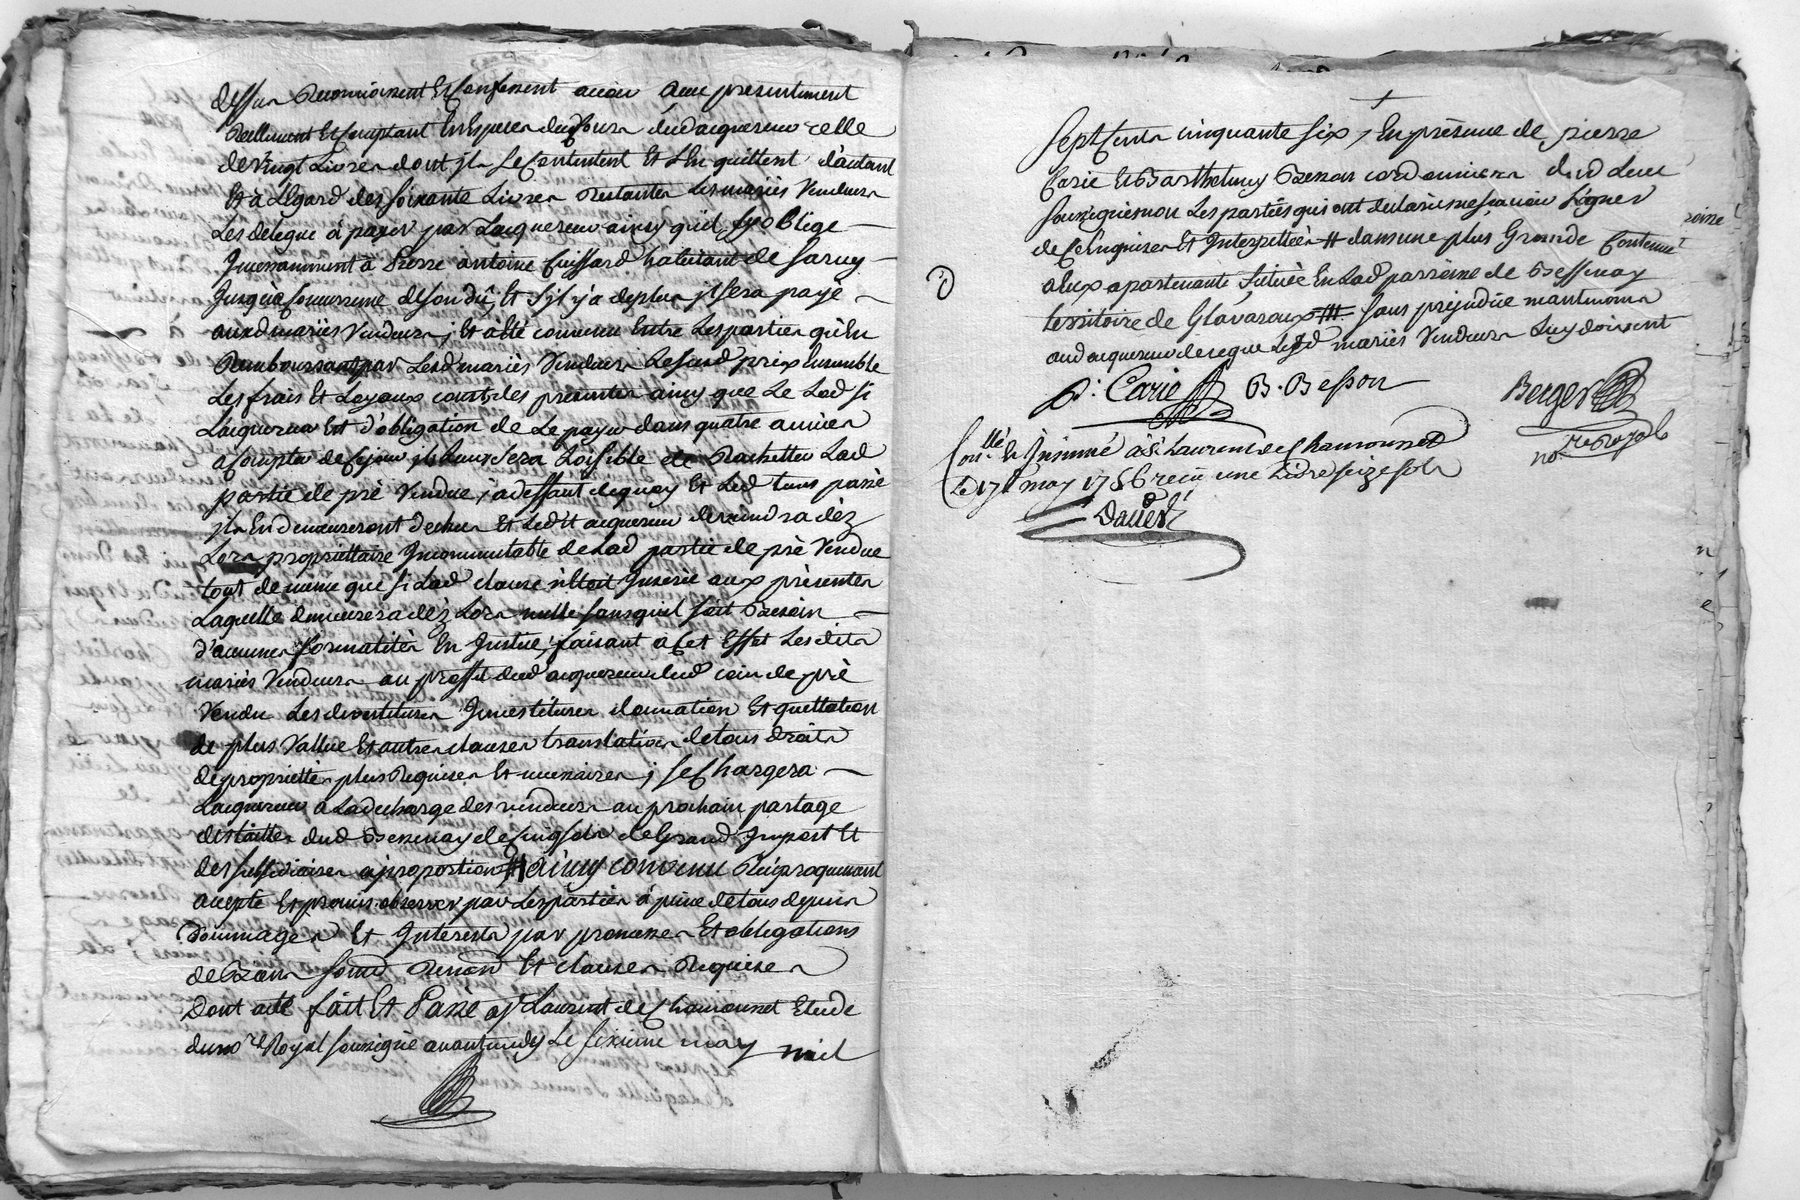 dessus reconnoissent et confessent avoir eu presentement
reellement et comptant en espèces de cours dud acquereur celle
de vingt Livres dont ils se contentent et l'en quittent d'autant
et à L'égard des soixante Livres restantes Les mariés Vendeurs
Les delegue à payer par L'acquereur ainsy qu'il s'y oblige
Incessamment à Pierre antoine Cuissard habitant de Sarcey
Jusqu'à concurrence de son dû, Et s'il y a de plus il sera payé
auxd mariés Vendeurs ; Et a été convenu Entre Les parties qu'En
Remboursant par Lesd mariés Vendeurs Le susd prix Ensemble
Les frais Et Loyaux couts des presentes ainsy que Le Lod si
L'acquereur Est d'obligation de Le payer dans quatre années
a Compter de Ce jour il Leur Sera Loisible de Rachetter Lad
partie de pré Vendue ; a deffaut de quoy Et Led tems passé
ils En demeureront dechus Et Led't acquereur deviendra dèz
Lors propriettaire Incommutable de Lad partie de pré Vendue
tout de meme que si Lad clause n'Etoit Inserée aux presentes
Laquelle demeurera dèz Lors nulle sans qu'il soit Besoin
d'aucunes formalités En Justice ; faisant a Cet Effet Lesdits
mariés Vendeurs au proffit dud acquereur dud coin de pré
Vendu Les devestitures Investitures donnation Et quittation
de plus Vallue Et autres clauses translatives de tous droits
de proprietté plus Requises Et necessaires ; se Chargera
L'acquereur a La decharge des vendeurs au prochain partage
des tailles dud Bessenay de Cinq sols de Grand Import Et
des subsidiaires a proportion # ainsy convenu Reciproquement
accepté Et promis observer par Les parties à peine de tous depens
Dommages Et Interests par promesses Et obligations
de Biens soum renon Et clauses Requises
Dont acte fait Et Passé a St Laurent de Chamousset Etude
du no.re Royal soussigné avant midy Le sixieme may mil
Sept Cents cinquante six, En présence de pierre
Carie Et Barthelemy Besson cordonniers dud Lieu
soussignés non Les parties qui ont declaré ne sçavoir Signer
de Ce Enquises Et Interpellées # dans une plus Grande Contenue
a Eux apartenante Située En Lad parroisse de Bessenay
territoire de Glavaroux ## sans prejudice
aud acquereur de ce que Lesd mariés Vendeurs Luy doivent
P. Carie B. Besson Berger
no.re Royal
Con.llé Et Insinué à St Laurent de Chamousset
Le 17e may 1756 reçu une Livre seize sols
Daveth